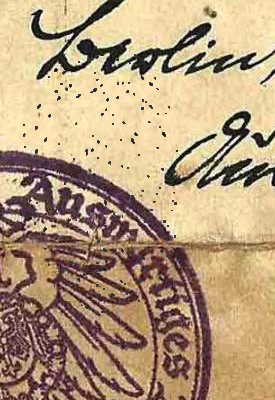 Berlin,
Auswärtiges